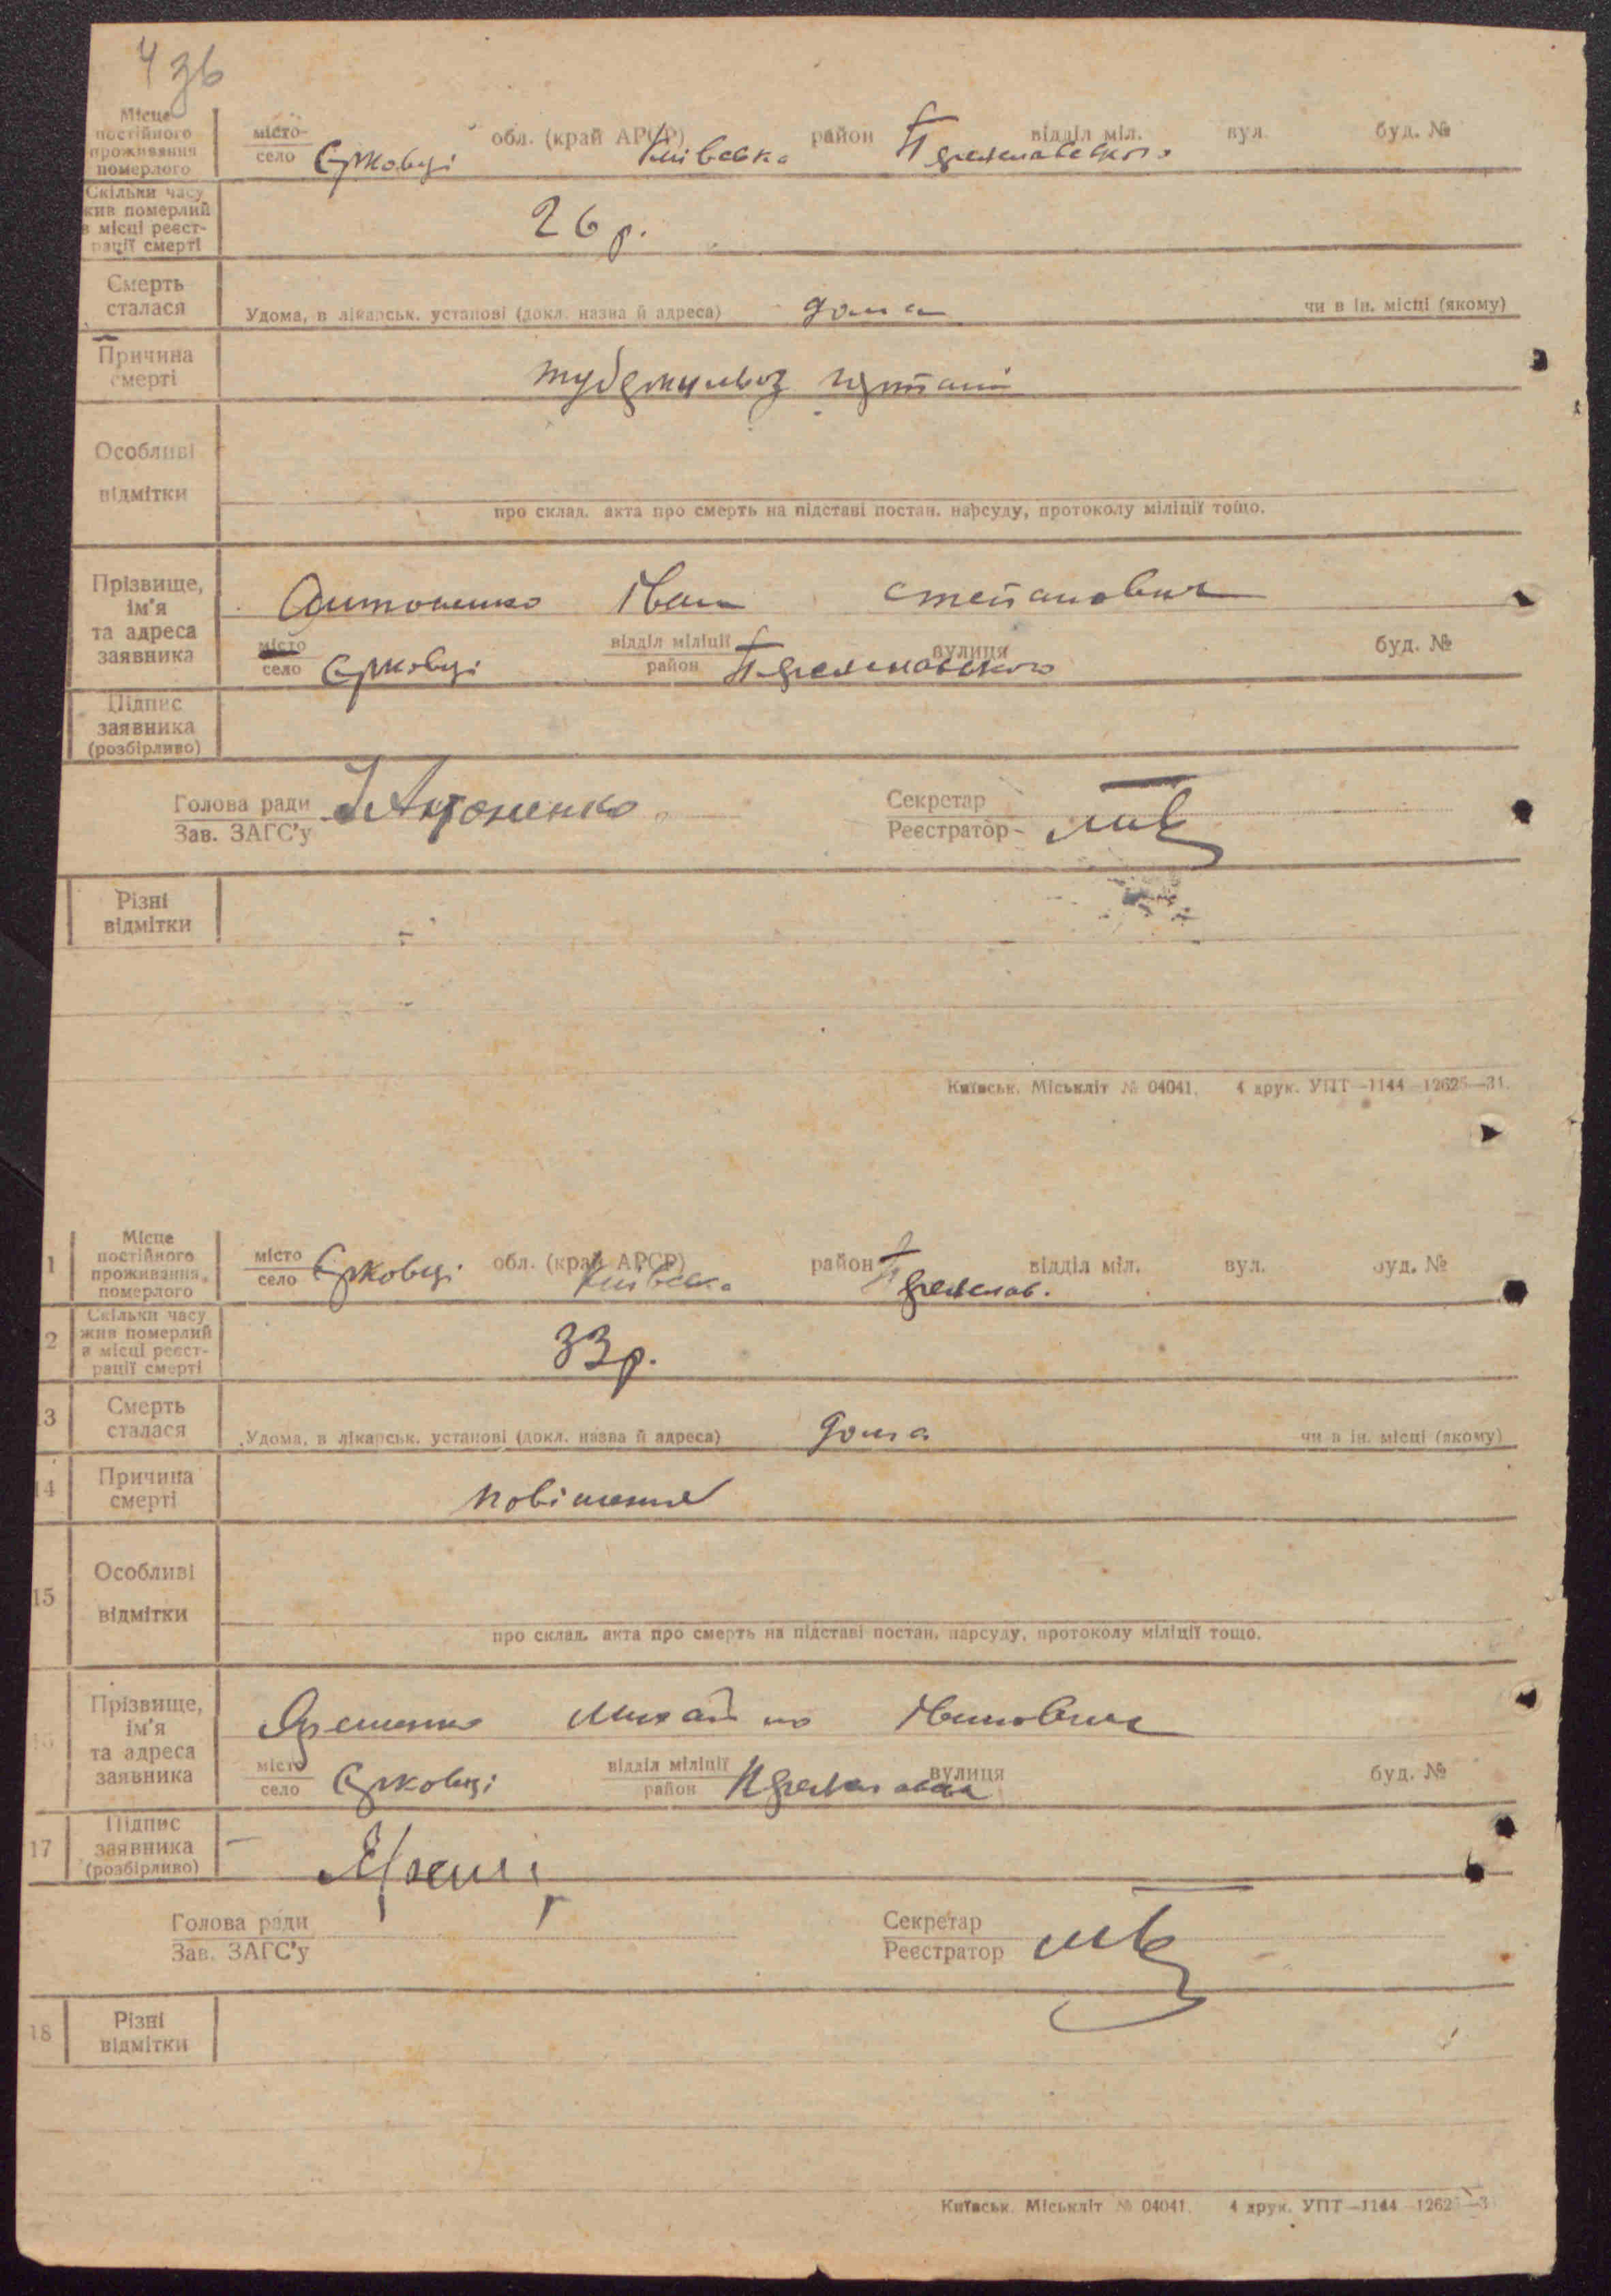 4 зв
Місце постійного проживання померлого
місто село Єрковці обл. (край АРСР) Київська район Переяславського відділ міл. вул. буд. №
Скільки часу жив померлий в місці реєстрації смерті
26 р.
Смерть сталася
Удома, в лікарськ. установі (докл. назва й адреса) дома чи в ін. місці (якому)
Причина смерті
туберкульоз
Особливі відмітки
про склад. акта про смерть на підставі постан. нарсуду, протоколу міліції тощо.
Прізвище, ім'я та адреса заявника
Антоненко Іван Степанович
місто село Єрковці відділ міліції район Переяславського вулиця буд. №
Підпис заявника (розбірливо)
Голова ради І Антоненко Секретар
Зав. ЗАГС'у Реєстратор
Різні відмітки
Київськ. Міськліт № 04041. 4 друк. УПТ—1144—12625—31.
1 Місце постійного проживання померлого
місто село Єрковці обл. (край АРСР) Київська район Переяслав. відділ міл. вул. буд. №
2 Скільки часу жив померлий в місці реєстрації смерті
33 р.
3 Смерть сталася
Удома, в лікарськ. установі (докл. назва й адреса) дома чи в ін. місці (якому)
14 Причина смерті
повішення
15 Особливі відмітки
про склад. акта про смерть на підставі постан. нарсуду, протоколу міліції тощо.
16 Прізвище, ім'я та адреса заявника
Михайло
місто село Єрковці відділ міліції район вулиця буд. №
17 Підпис заявника (розбірливо)
Голова ради Секретар
Зав. ЗАГС'у Реєстратор
18 Різні відмітки
Київськ. Міськліт № 04041. 4 друк. УПТ—1144—12625—3